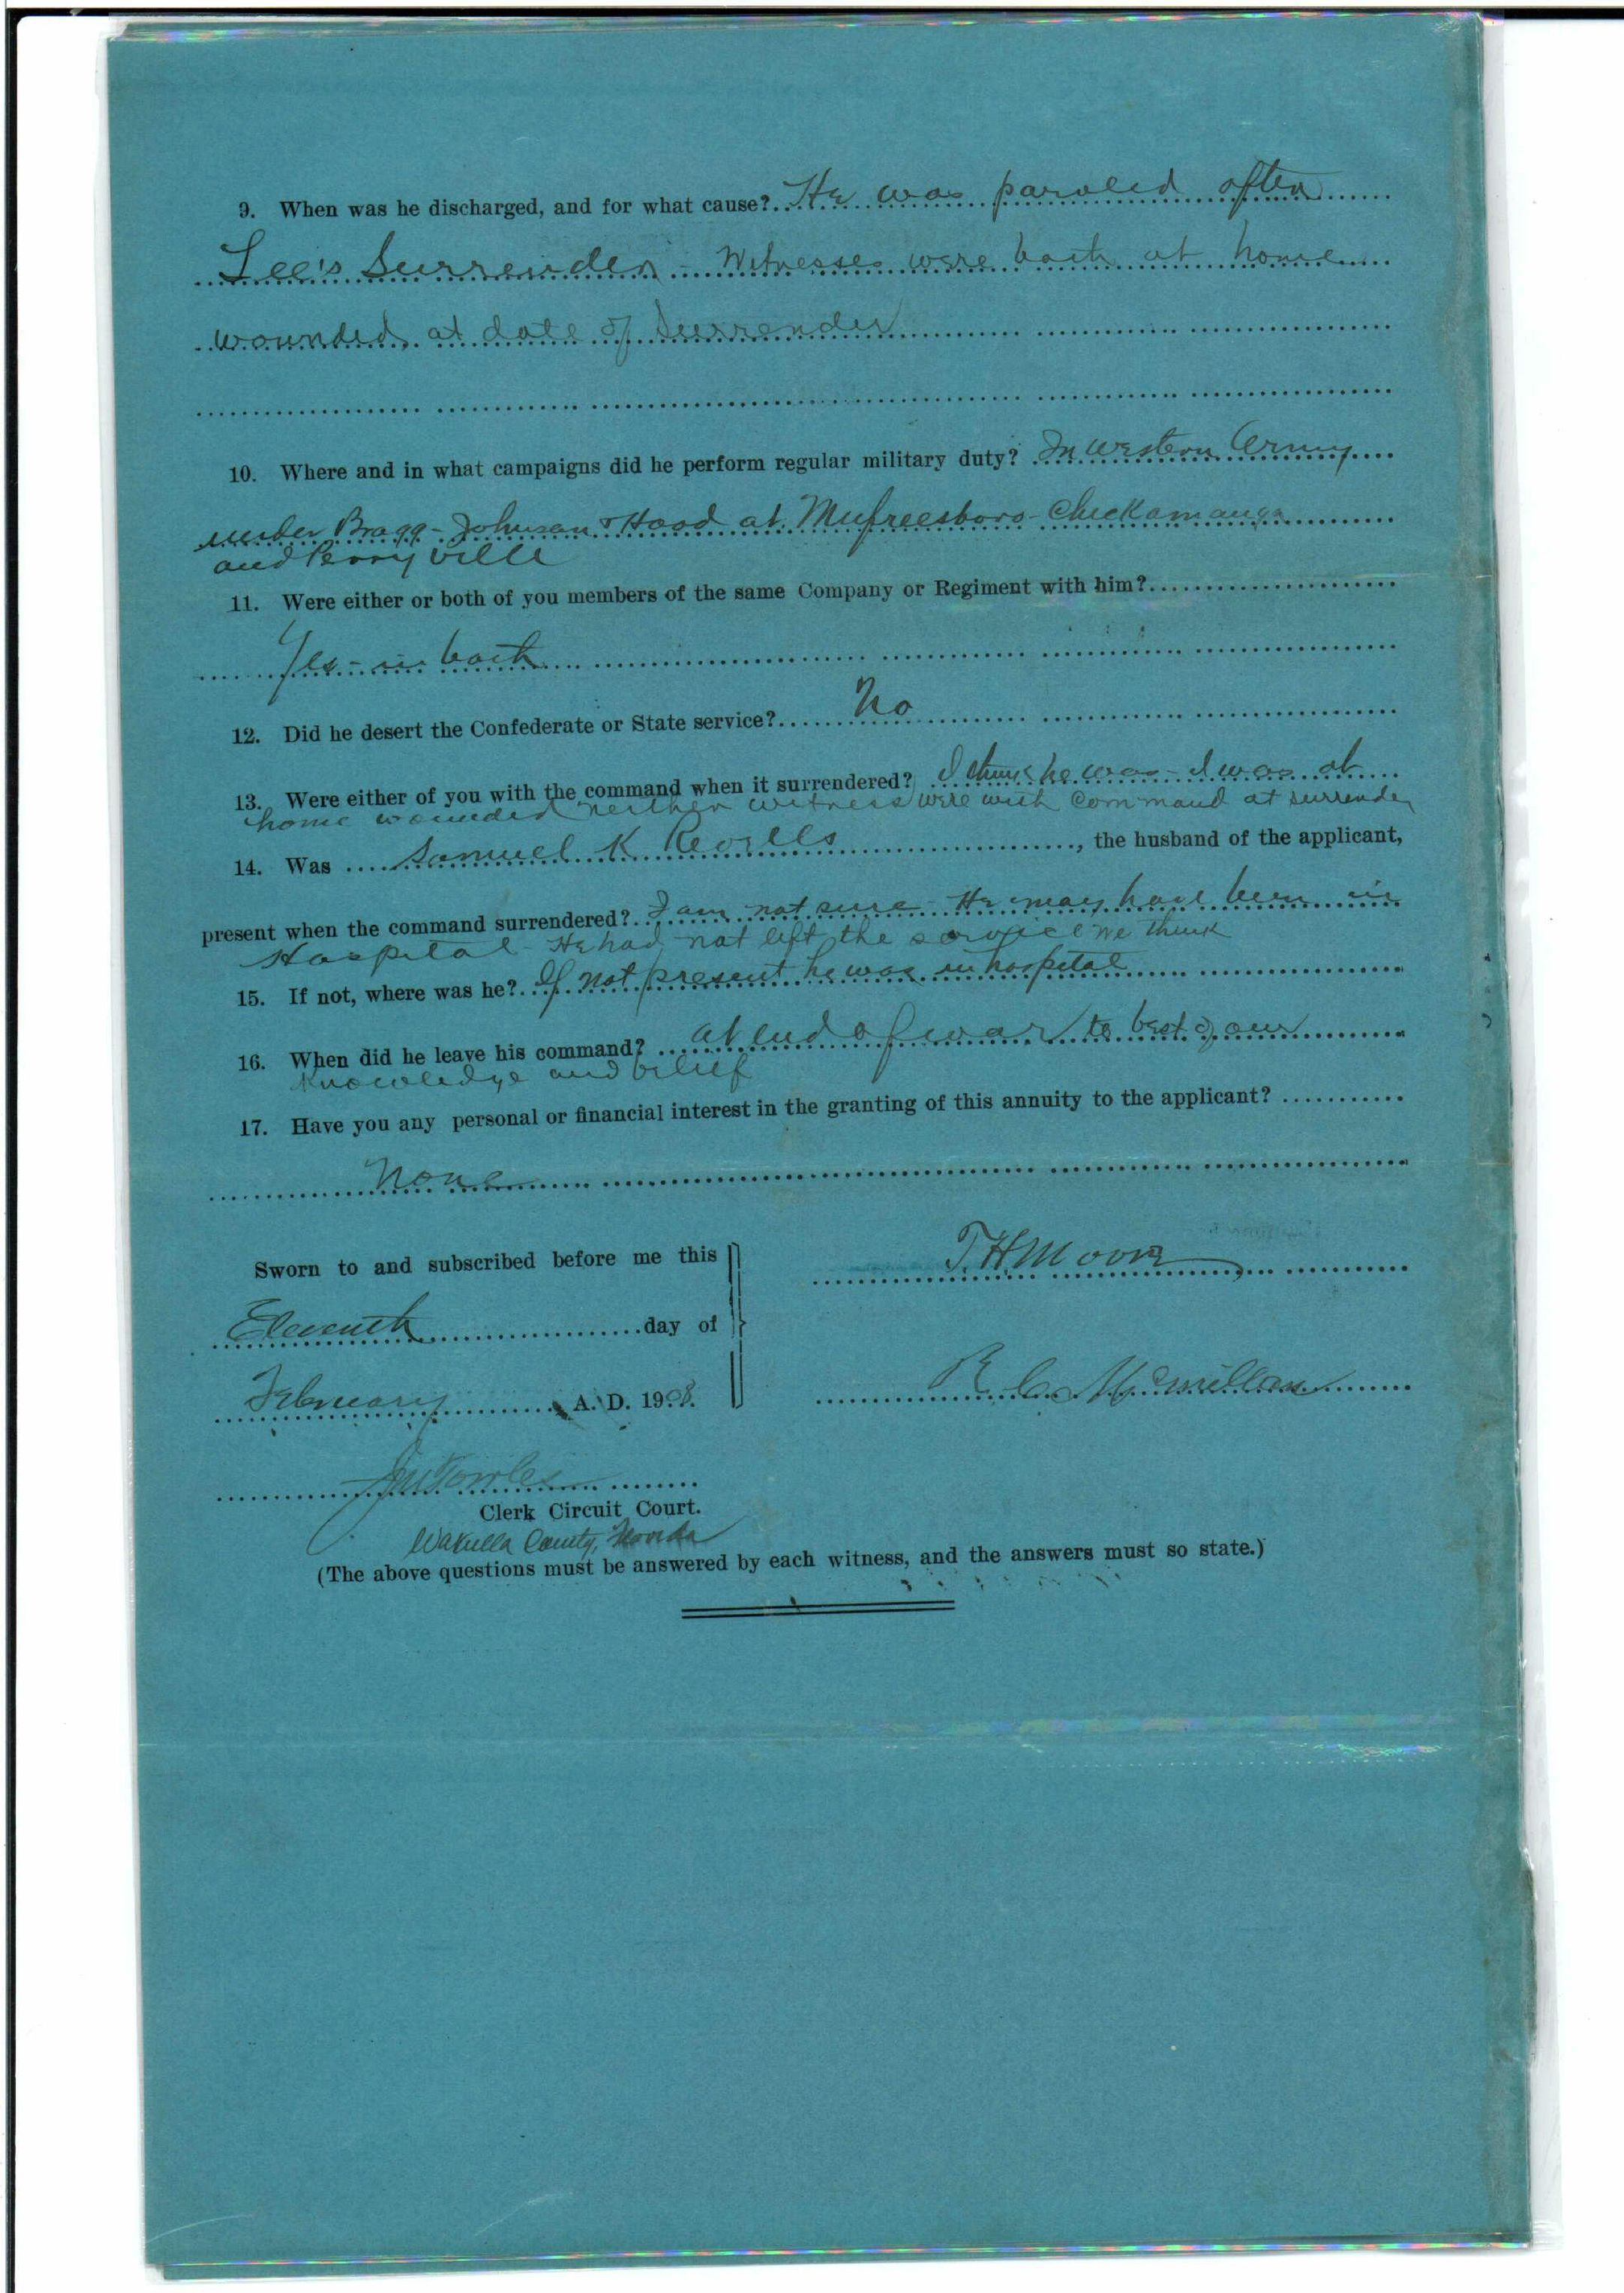 9. When was he discharged, and for what cause? He was paroled after
Lee's Surrender - Witnesses were both at home
wounded at date of Surrender
10. Where and in what campaigns did he perform regular military duty? In Western Army
under Bragg - Johnson & Hood at Mufreesboro - Chickamauga
and Perryville
11. Were either or both of you members of the same Company or Regiment with him?
Yes - in both
12. Did he desert the Confederate or State service? No
13. Were either of you with the command when it surrendered? I think he was - I was at
home wounded neither witness were with Command at surrender
14. Was Samuel K Revells, the husband of the applicant,
present when the command surrendered? I am not sure - He may have been in
Hospital - He had not left the service we think
15. If not, where was he? If not present he was in hospital
16. When did he leave his command? At end of war to best of our
Knowledge and belief
17. Have you any personal or financial interest in the granting of this annuity to the applicant?
None
Sworn to and subscribed before me this
T. H. Moore
Eleventh day of
February A. D. 1908.
R. C. McMillan
Clerk Circuit Court.
Wakulla County, Florida
(The above questions must be answered by each witness, and the answers must so state.)